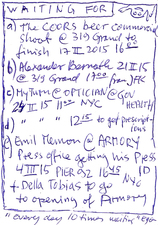 WAITING FOR:
a) The COORS beer commercial
shoot @ 319 Grand to
finish 17 II 2015 16 00
b) Alexander Bernath 21 II 15
@ 319 Grand 17 00 from JFK
c) My Turn @ OPTICIAN @ GOV
24 II 15 NYC HEALTH
d) " " 12 15 to get prescriptions
e) Emil Memon @ ARMORY
Press office getting his Press
4 III 15 PIER 92 16 45 ID
+ Della Tobias to go NYC
to opening of Armory
"every day 10 times waiting"